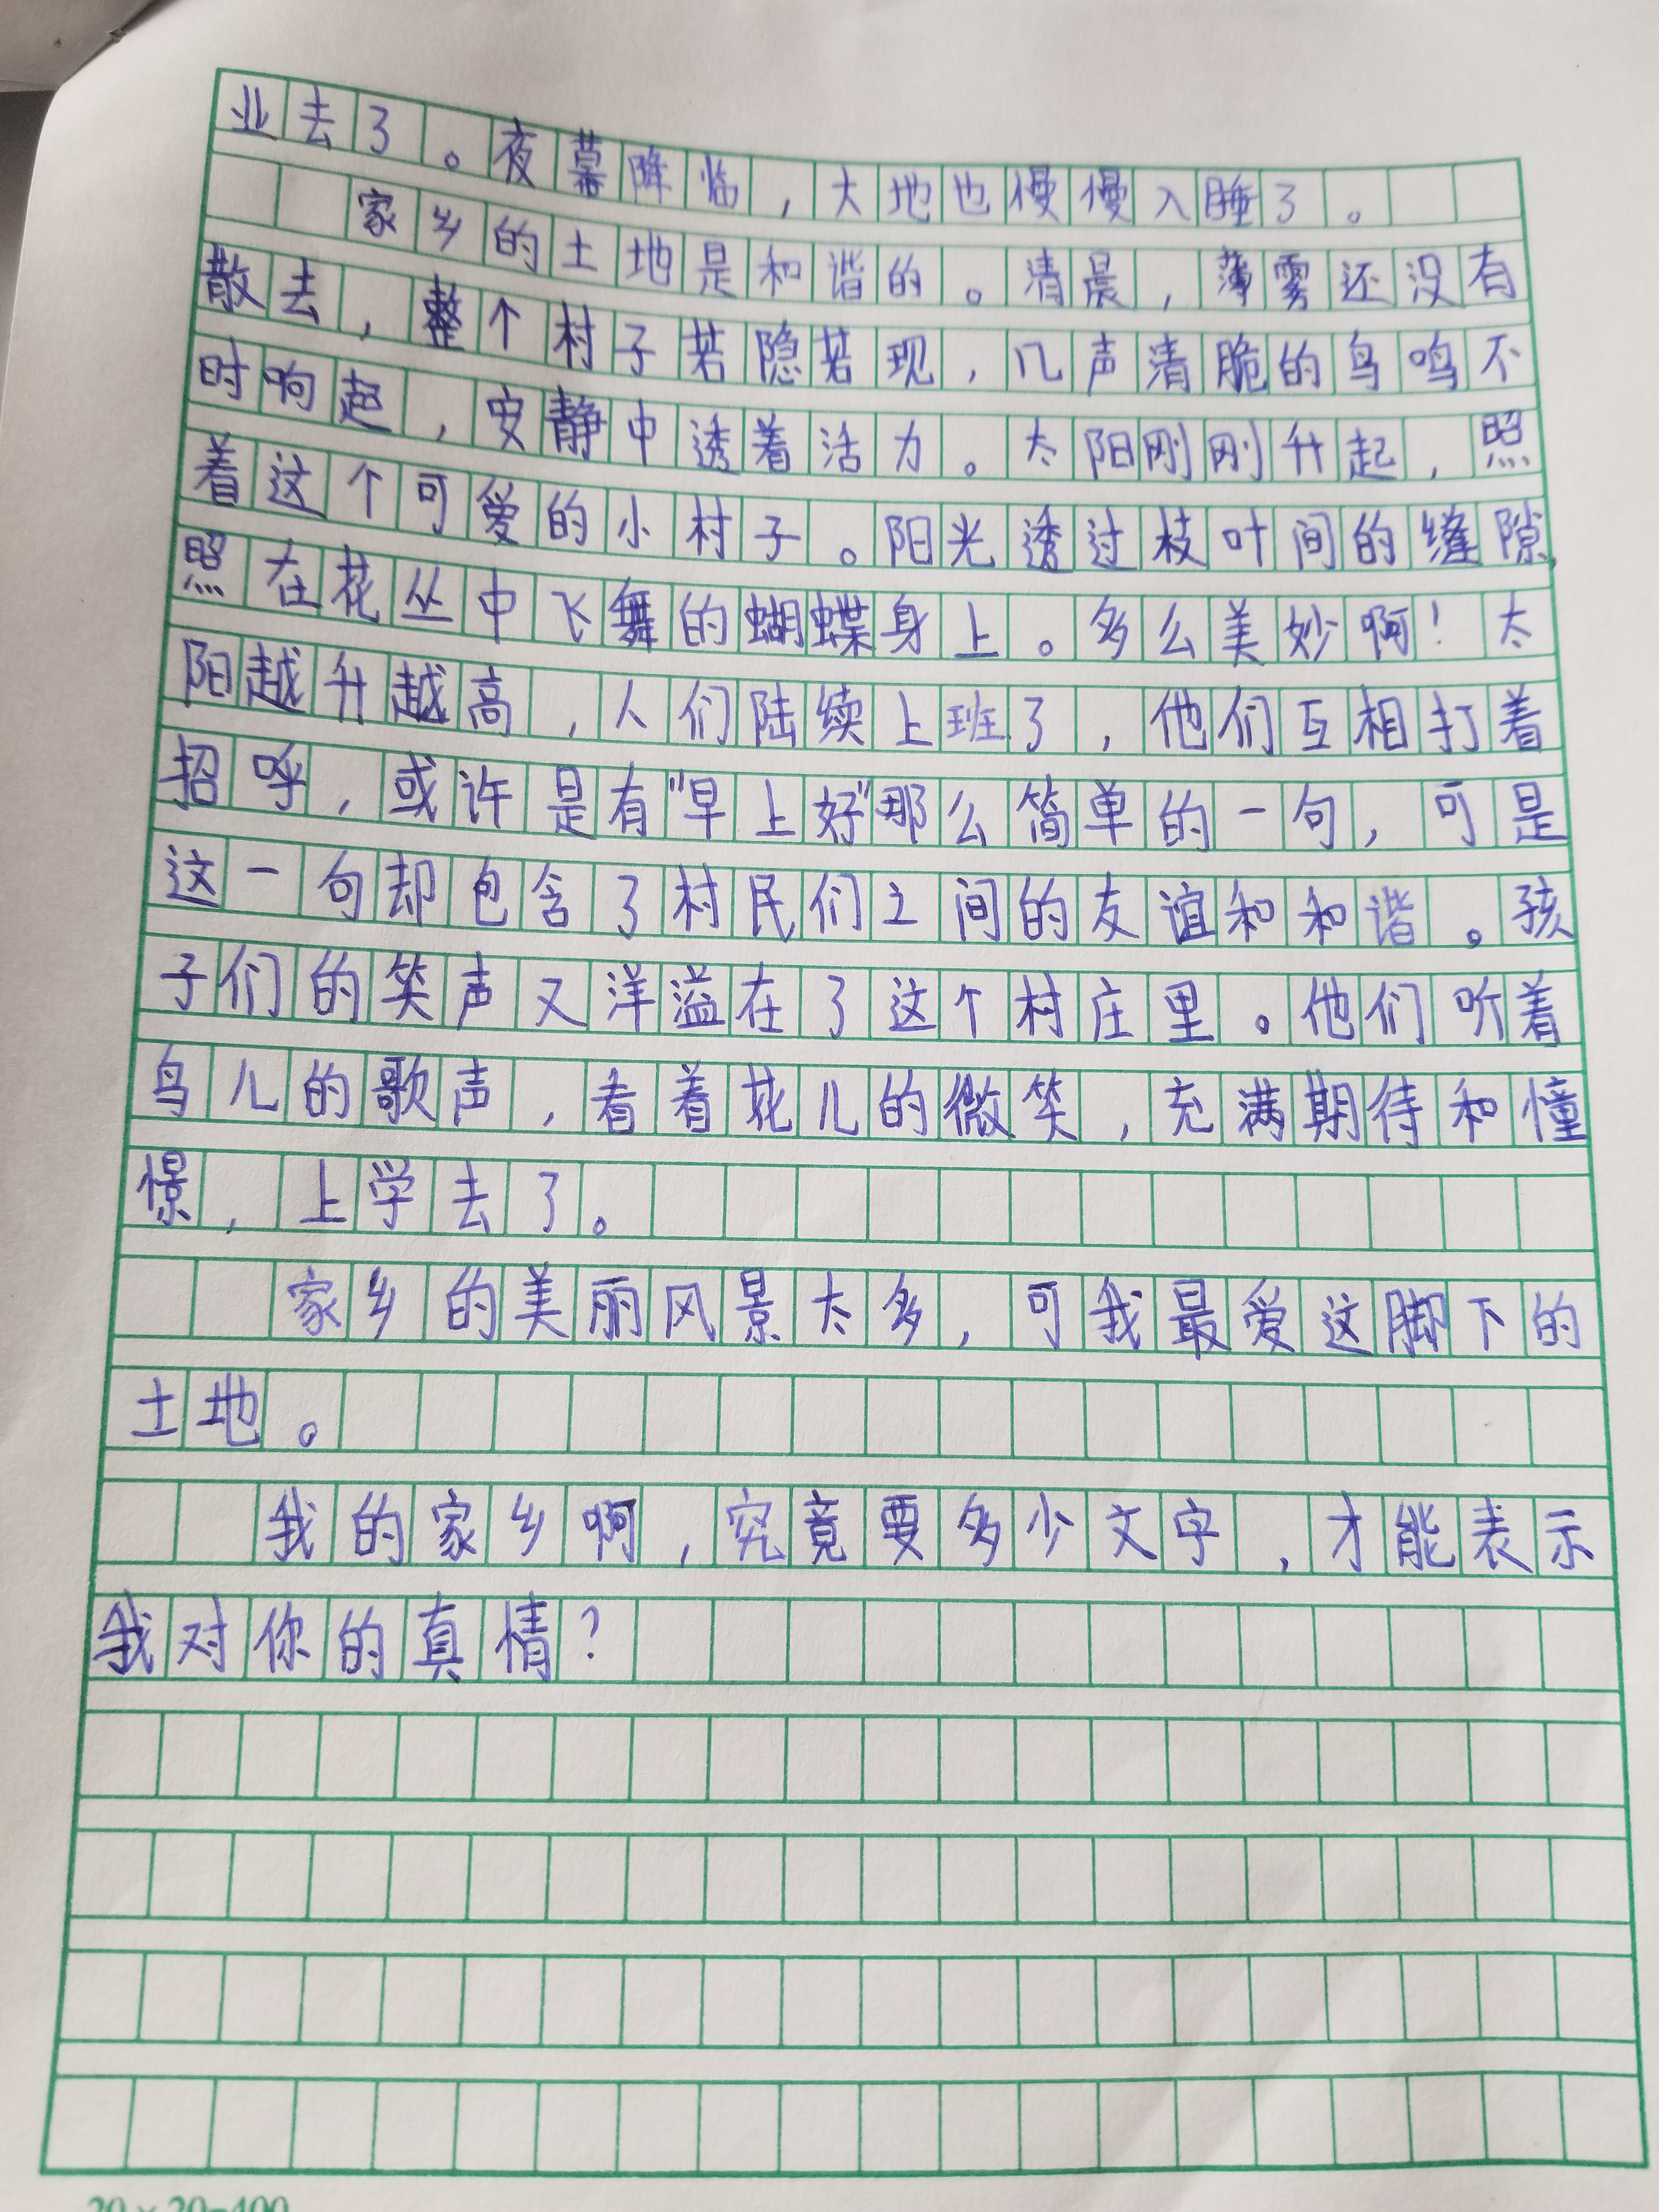 业去了。夜幕降临，大地也慢慢入睡了。
家乡的土地是和谐的。清晨，薄雾还没有
散去，整个村子若隐若现，几声清脆的鸟鸣不
时响起，安静中透着活力。太阳刚刚升起，照
着这个可爱的小村子。阳光透过枝叶间的缝隙，
照在花丛中飞舞的蝴蝶身上。多么美妙啊！太
阳越升越高，人们陆续上班了，他们互相打着
招呼，或许是有“早上好”那么简单的一句，可是
这一句却包含了村民们之间的友谊和和谐。孩
子们的笑声又洋溢在了这个村庄里。他们听着
鸟儿的歌声，看着花儿的微笑，充满期待和憧
憬，上学去了。
家乡的美丽风景太多，可我最爱这脚下的
土地。
我的家乡啊，究竟要多少文字，才能表示
我对你的真情？
20×20=400